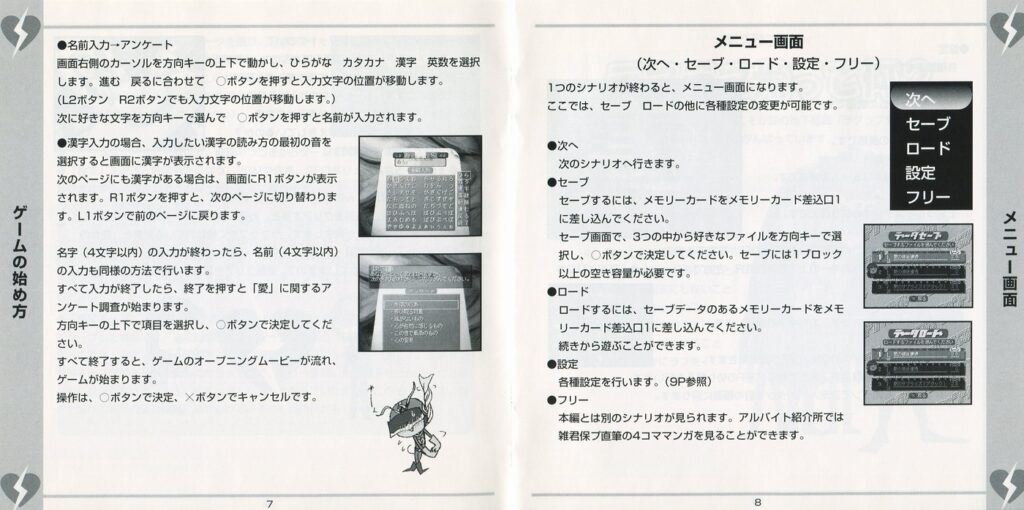 ●名前入力→アンケート
画面右側のカーソルを方向キーの上下で動かし、ひらがな　カタカナ　漢字　英数を選択
します。進む　戻るに合わせて　○ボタンを押すと入力文字の位置が移動します。
（L2ボタン　R2ボタンでも入力文字の位置が移動します。）
次に好きな文字を方向キーで選んで　○ボタンを押すと名前が入力されます。
●漢字入力の場合、入力したい漢字の読み方の最初の音を
選択すると画面に漢字が表示されます。
次のページにも漢字がある場合は、画面にR1ボタンが表示
されます。R1ボタンを押すと、次のページに切り替わりま
す。L1ボタンで前のページに戻ります。
名字（4文字以内）の入力が終わったら、名前（4文字以内）
の入力も同様の方法で行います。
すべて入力が終了したら、終了を押すと「愛」に関するア
ンケート調査が始まります。
方向キーの上下で項目を選択し、○ボタンで決定してくだ
さい。
すべて終了すると、ゲームのオープニングムービーが流れ、
ゲームが始まります。
操作は、○ボタンで決定、×ボタンでキャンセルです。
ゲームの始め方
7
メニュー画面
（次へ・セーブ・ロード・設定・フリー）
1つのシナリオが終わると、メニュー画面になります。
ここでは、セーブ　ロードの他に各種設定の変更が可能です。
次へ
セーブ
ロード
設定
フリー
●次へ
次のシナリオへ行きます。
●セーブ
セーブするには、メモリーカードをメモリーカード差込口1
に差し込んでください。
セーブ画面で、3つの中から好きなファイルを方向キーで選
択し、○ボタンで決定してください。セーブには1ブロック
以上の空き容量が必要です。
データセーブ
●ロード
ロードするには、セーブデータのあるメモリーカードをメモ
リーカード差込口1に差し込んでください。
続きから遊ぶことができます。
データロード
●設定
各種設定を行います。（9P参照）
●フリー
本編とは別のシナリオが見られます。アルバイト紹介所では
雑君保プ直筆の4コママンガを見ることができます。
メニュー画面
8